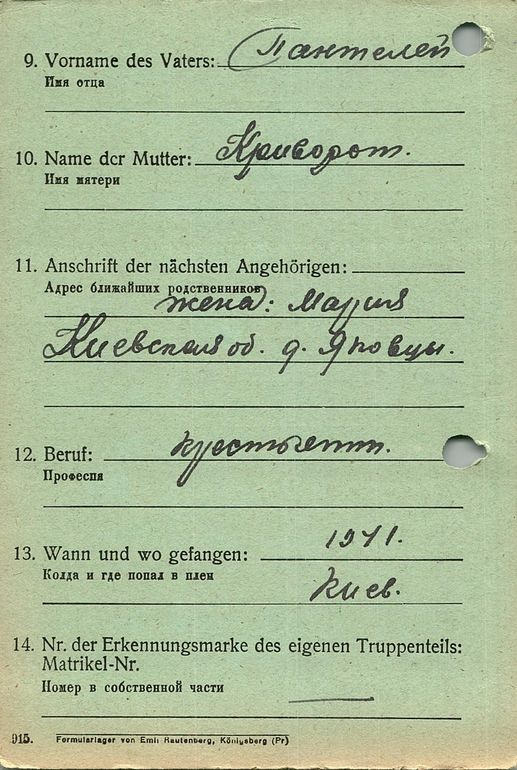 9. Vorname des Vaters: Пантелей
Имя отца
10. Name der Mutter: Криворот.
Имя мятери
11. Anschrift der nächsten Angehörigen:
Адрес ближайших родственников
жена: Мария
Киевская об. д. Яповцы.
12. Beruf: крестьянин.
Професпя
13. Wann und wo gefangen: 1941.
Колда и где попал в плен
Киев.
14. Nr. der Erkennungsmarke des eigenen Truppenteils:
Matrikel-Nr.
Номер в собственной части
915. Formularlager von Emil Rautenberg, Königsberg (Pr)